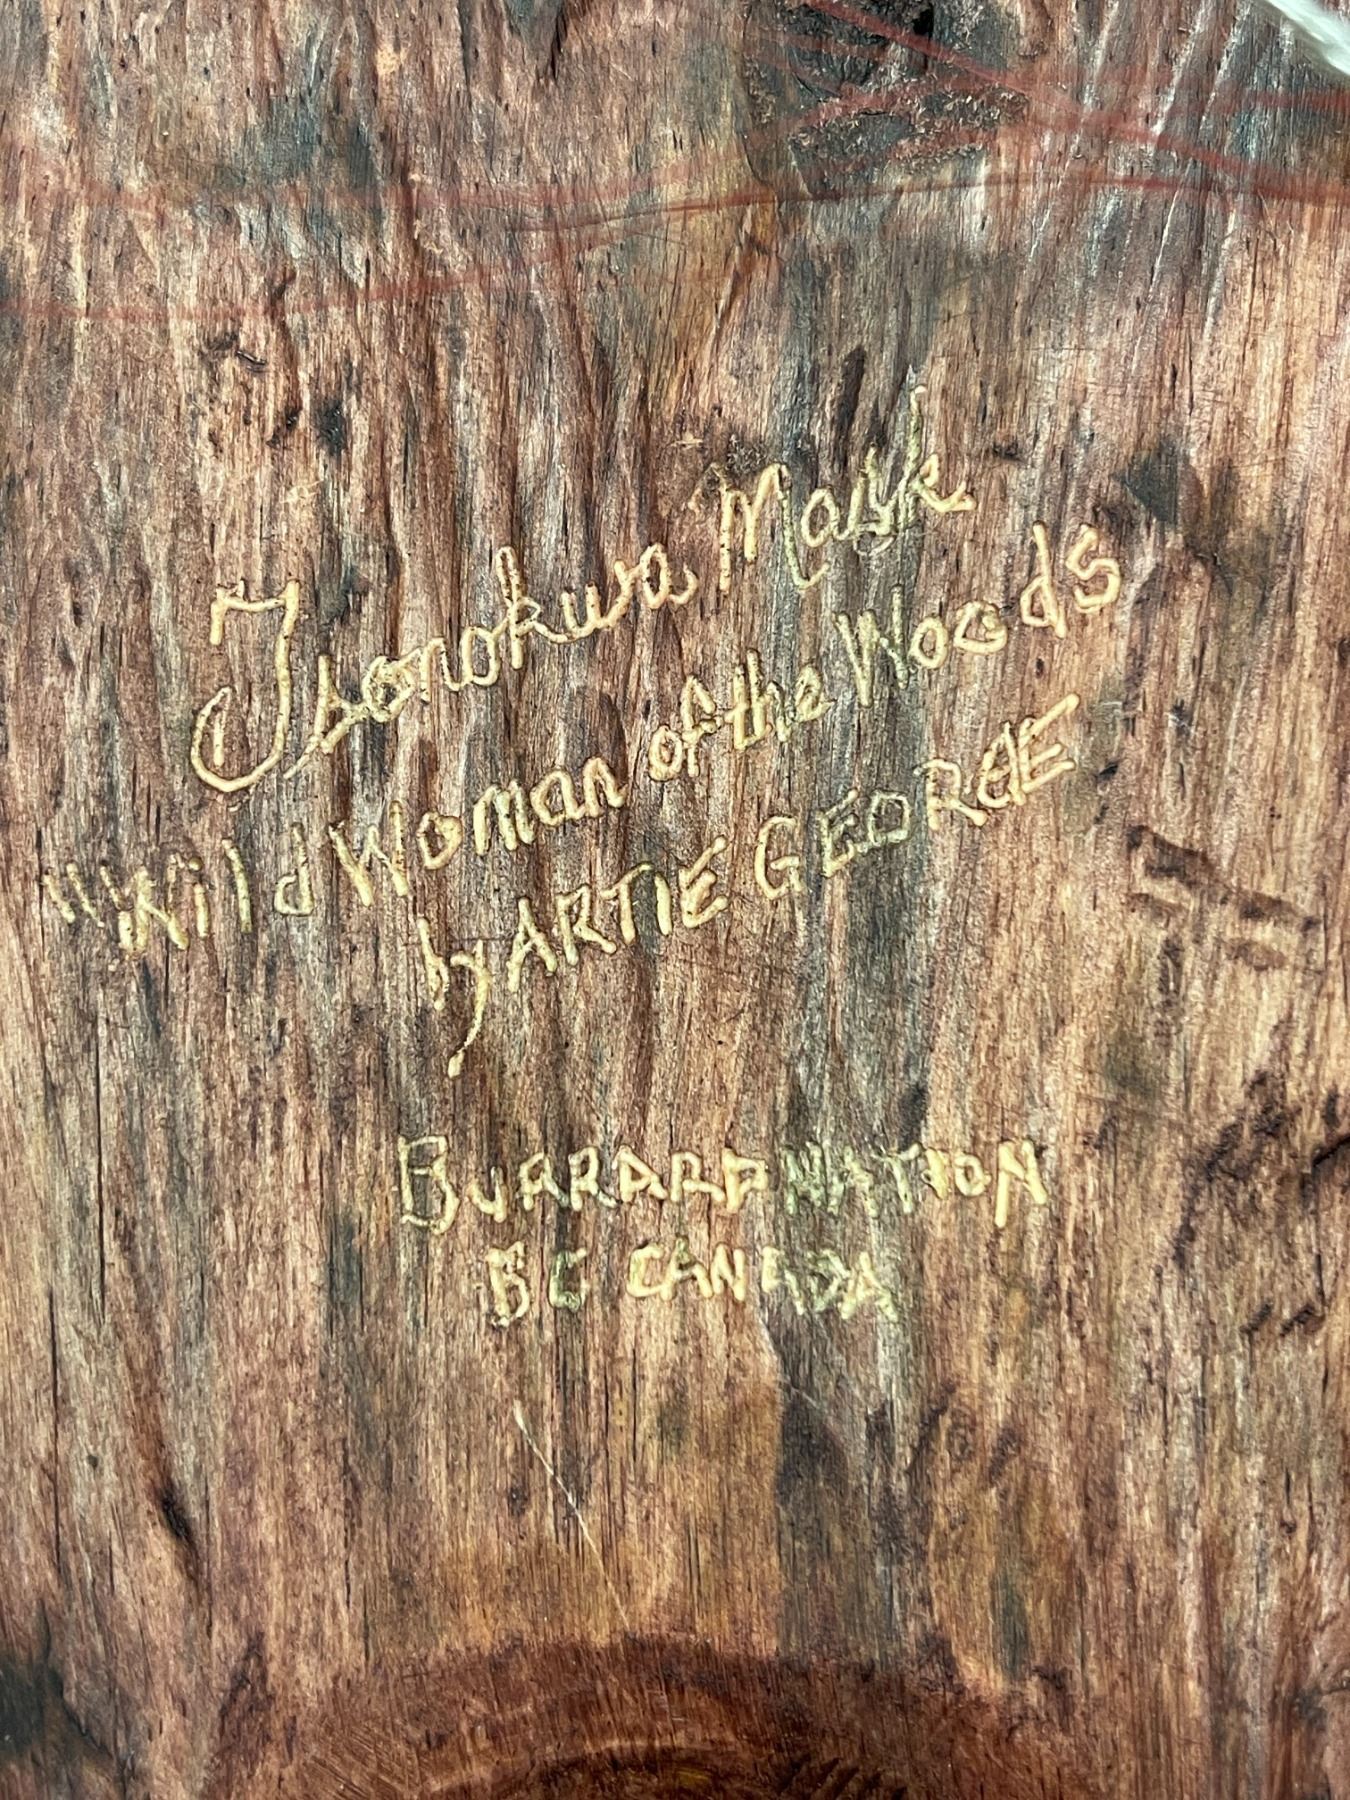 Tsonokwa Mask
"Wild Woman of the Woods
by ARTIE GEORGE
BURRARD NATION
BC CANADA